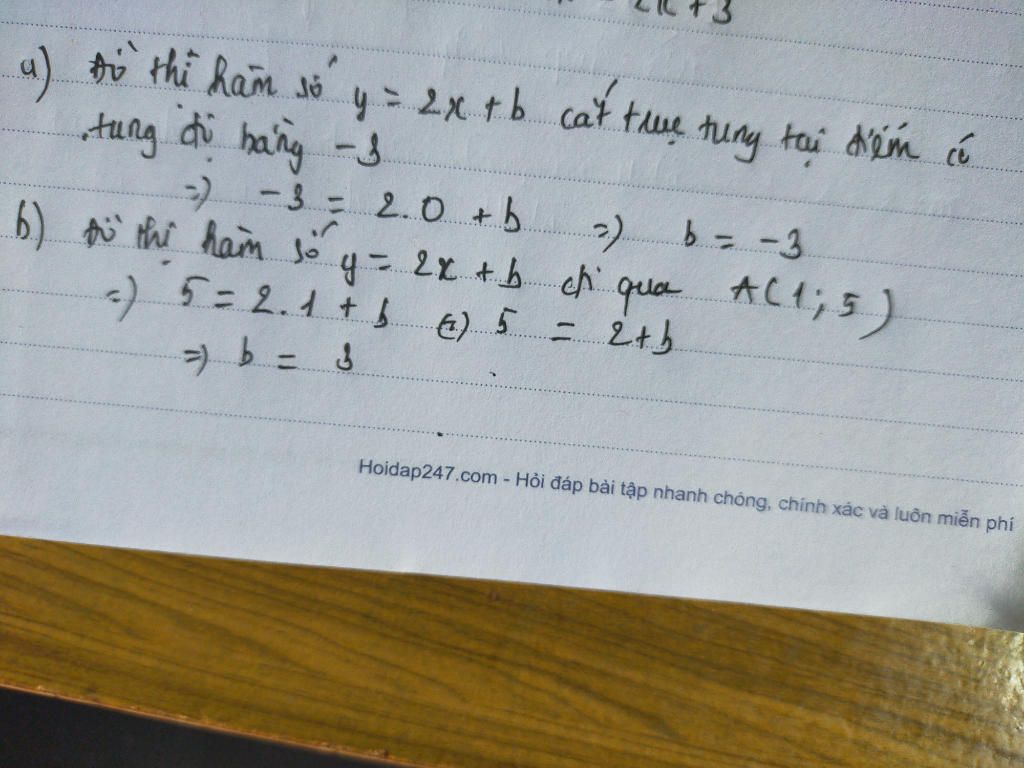 2x + 3
a) Đồ thị hàm số y = 2x + b cắt trục tung tại điểm có
tung độ bằng -3
=) -3 = 2.0 + b =) b = -3
b) Đồ thị hàm số y = 2x + b đi qua A(1; 5)
=) 5 = 2.1 + b (=) 5 = 2+b
=) b = 3
Hoidap247.com - Hỏi đáp bài tập nhanh chóng, chính xác và luôn miễn phí